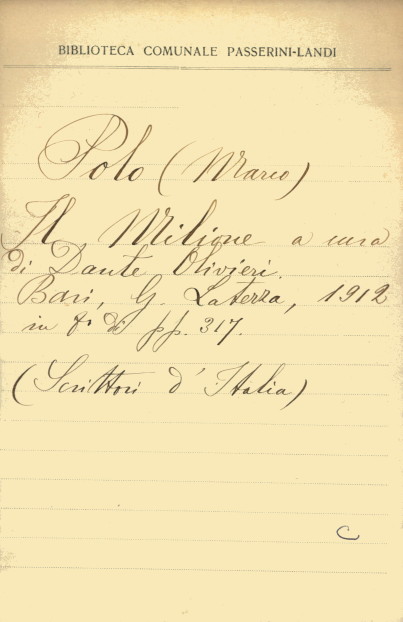 BIBLIOTECA COMUNALE PASSERINI-LANDI
Polo (Marco)
Il Milione a cura
di Dante Olivieri.
Bari, G. Laterza, 1912
in 8° di pp. 317.
(Scrittori d'Italia)
C